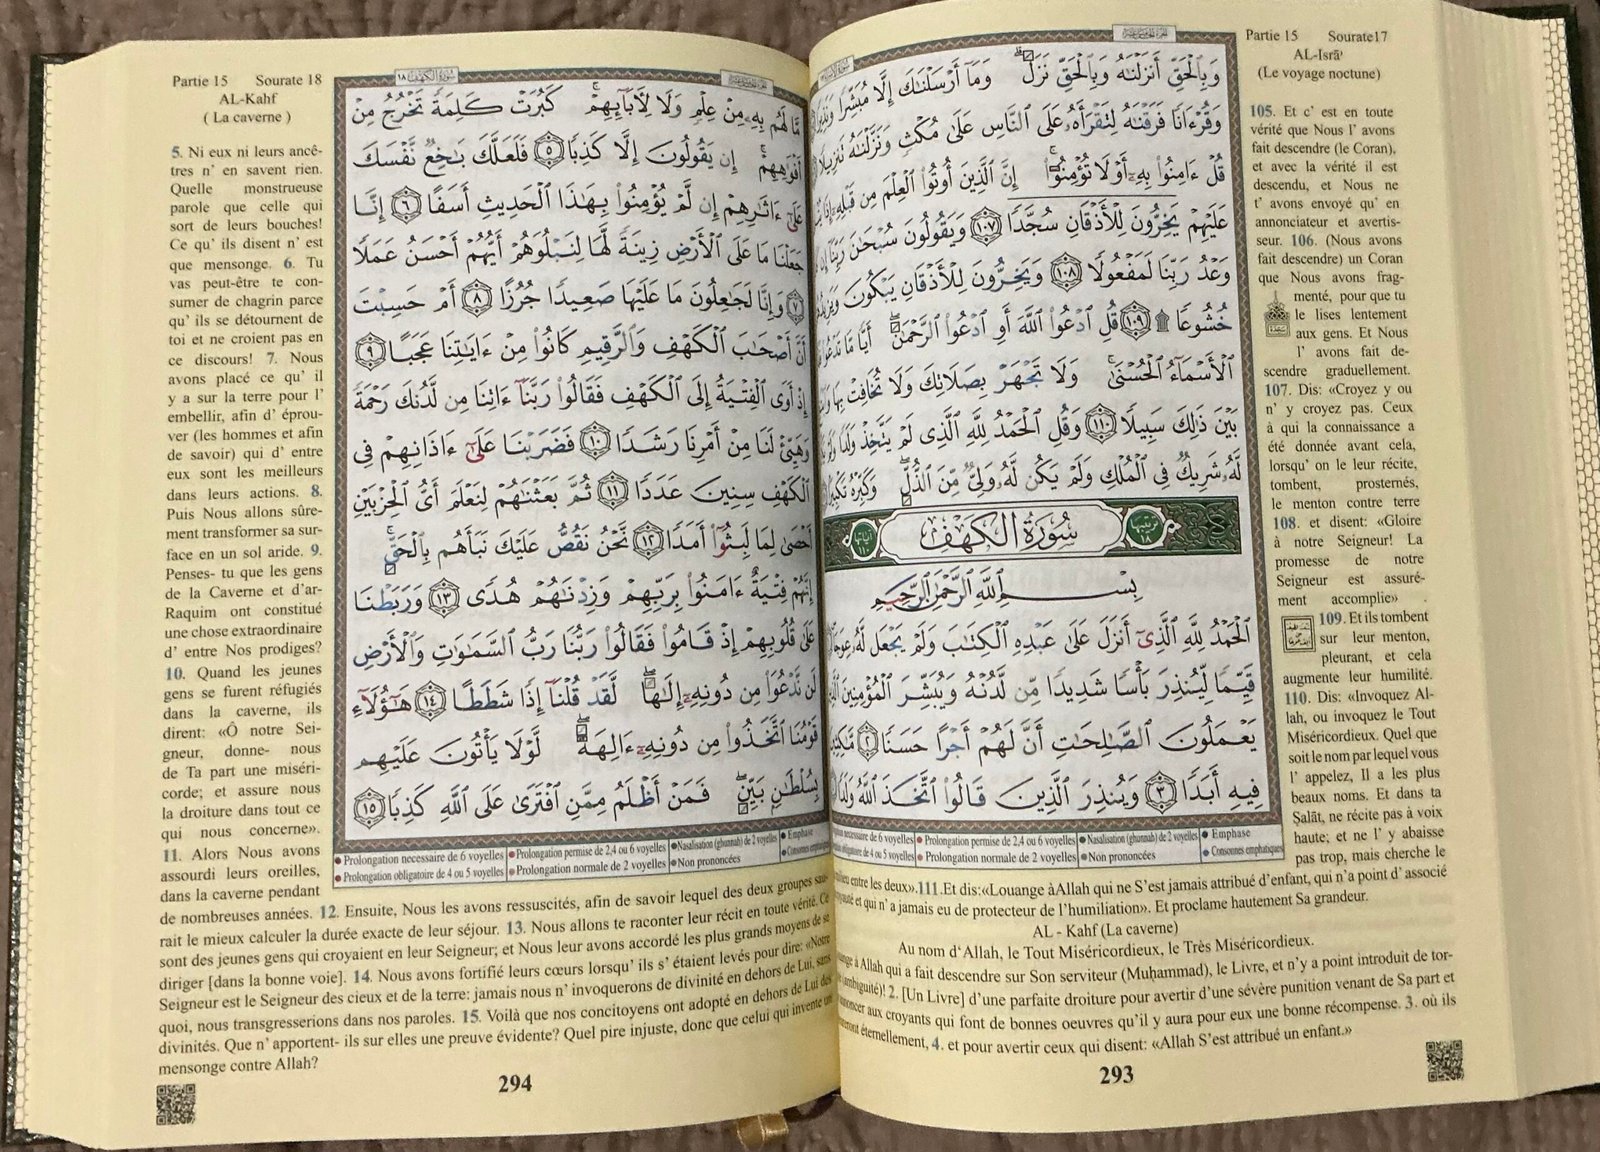 Partie 15 Sourate17
AL-Isrā'
(Le voyage noctune)
105. Et c' est en toute
vérité que Nous l' avons
fait descendre (le Coran),
et avec la vérité il est
descendu, et Nous ne
t' avons envoyé qu' en
annonciateur et avertis-
seur. 106. (Nous avons
fait descendre) un Coran
que Nous avons frag-
menté, pour que tu
le lises lentement
aux gens. Et Nous
l' avons fait de-
scendre graduellement.
107. Dis: «Croyez y ou
n' y croyez pas. Ceux
à qui la connaissance a
été donnée avant cela,
lorsqu' on le leur récite,
tombent, prosternés,
le menton contre terre
108. et disent: «Gloire
à notre Seigneur! La
promesse de notre
Seigneur est assuré-
ment accomplie» .
109. Et ils tombent
sur leur menton,
pleurant, et cela
augmente leur humilité.
110. Dis: «Invoquez Al-
lah, ou invoquez le Tout
Miséricordieux. Quel que
soit le nom par lequel vous
l' appelez, Il a les plus
beaux noms. Et dans ta
Ṣalāt, ne récite pas à voix
haute; et ne l' y abaisse
pas trop, mais cherche le
وَبِالْحَقِّ أَنزَلْنَٰهُ وَبِالْحَقِّ نَزَلَ وَمَا أَرْسَلْنَٰكَ إِلَّا مُبَشِّرًا وَنَذِيرًا
وَقُرْءَانًا فَرَقْنَٰهُ لِتَقْرَأَهُۥ عَلَى النَّاسِ عَلَىٰ مُكْثٍ وَنَزَّلْنَٰهُ تَنزِيلًا
قُلْ ءَامِنُوا۟ بِهِۦٓ أَوْ لَا تُؤْمِنُوٓا۟ إِنَّ الَّذِينَ أُوتُوا۟ الْعِلْمَ مِن قَبْلِهِۦٓ إِذَا
عَلَيْهِمْ يَخِرُّونَ لِلْأَذْقَانِ سُجَّدًا ١٠٧ وَيَقُولُونَ سُبْحَٰنَ رَبِّنَآ إِن
وَعْدُ رَبِّنَا لَمَفْعُولًا ١٠٨ وَيَخِرُّونَ لِلْأَذْقَانِ يَبْكُونَ وَيَزِيدُهُمْ
خُشُوعًا ۩ ١٠٩ قُلِ ادْعُوا۟ اللَّهَ أَوِ ادْعُوا۟ الرَّحْمَٰنَ أَيًّا مَّا تَدْعُوا۟
الْأَسْمَآءُ الْحُسْنَىٰ وَلَا تَجْهَرْ بِصَلَاتِكَ وَلَا تُخَافِتْ بِهَا
بَيْنَ ذَٰلِكَ سَبِيلًا ١١٠ وَقُلِ الْحَمْدُ لِلَّهِ الَّذِى لَمْ يَتَّخِذْ وَلَدًا
لَّهُۥ شَرِيكٌ فِى الْمُلْكِ وَلَمْ يَكُن لَّهُۥ وَلِىٌّ مِّنَ الذُّلِّ وَكَبِّرْهُ تَكْبِيرًا
ترتيبها ١٨ سُورَةُ الكَهْفِ آياتها ١١٠
بِسْمِ اللَّهِ الرَّحْمَٰنِ الرَّحِيمِ
الْحَمْدُ لِلَّهِ الَّذِىٓ أَنزَلَ عَلَىٰ عَبْدِهِ الْكِتَٰبَ وَلَمْ يَجْعَل لَّهُۥ عِوَجَا
قَيِّمًا لِّيُنذِرَ بَأْسًا شَدِيدًا مِّن لَّدُنْهُ وَيُبَشِّرَ الْمُؤْمِنِينَ الَّذِينَ
يَعْمَلُونَ الصَّٰلِحَٰتِ أَنَّ لَهُمْ أَجْرًا حَسَنًا ٢ مَّٰكِثِينَ
فِيهِ أَبَدًا ٣ وَيُنذِرَ الَّذِينَ قَالُوا۟ اتَّخَذَ اللَّهُ وَلَدًا
necessaire de 6 voyelles • Prolongation permise de 2,4 ou 6 voyelles • Nasalisation (ghunnah) de 2 voyelles • Emphase
obligatoire de 4 ou 5 voyelles • Prolongation normale de 2 voyelles • Non prononcées • Consonnes emphatiques
milieu entre les deux».111.Et dis:«Louange àAllah qui ne S'est jamais attribué d'enfant, qui n'a point d' associé
et qui n' a jamais eu de protecteur de l'humiliation». Et proclame hautement Sa grandeur.
AL - Kahf (La caverne)
Au nom d'Allah, le Tout Miséricordieux, le Très Miséricordieux.
à Allah qui a fait descendre sur Son serviteur (Muḥammad), le Livre, et n'y a point introduit de tor-
(ambiguïté)! 2. [Un Livre] d'une parfaite droiture pour avertir d'une sévère punition venant de Sa part et
annoncer aux croyants qui font de bonnes oeuvres qu'il y aura pour eux une bonne récompense. 3. où ils
éternellement, 4. et pour avertir ceux qui disent: «Allah S'est attribué un enfant.»
293
Partie 15 Sourate 18
AL-Kahf
( La caverne )
5. Ni eux ni leurs ancê-
tres n' en savent rien.
Quelle monstrueuse
parole que celle qui
sort de leurs bouches!
Ce qu' ils disent n' est
que mensonge. 6. Tu
vas peut-être te con-
sumer de chagrin parce
qu' ils se détournent de
toi et ne croient pas en
ce discours! 7. Nous
avons placé ce qu' il
y a sur la terre pour l'
embellir, afin d' éprou-
ver (les hommes et afin
de savoir) qui d' entre
eux sont les meilleurs
dans leurs actions. 8.
Puis Nous allons sûre-
ment transformer sa sur-
face en un sol aride. 9.
Penses- tu que les gens
de la Caverne et d'ar-
Raquim ont constitué
une chose extraordinaire
d' entre Nos prodiges?
10. Quand les jeunes
gens se furent réfugiés
dans la caverne, ils
dirent: «Ô notre Sei-
gneur, donne- nous
de Ta part une miséri-
corde; et assure nous
la droiture dans tout ce
qui nous concerne».
11. Alors Nous avons
assourdi leurs oreilles,
dans la caverne pendant
سُورَةُ الكَهْفِ ١٨
مَّا لَهُم بِهِۦ مِنْ عِلْمٍ وَلَا لِءَابَآئِهِمْ كَبُرَتْ كَلِمَةً تَخْرُجُ مِنْ
أَفْوَٰهِهِمْ إِن يَقُولُونَ إِلَّا كَذِبًا ٥ فَلَعَلَّكَ بَٰخِعٌ نَّفْسَكَ
عَلَىٰٓ ءَاثَٰرِهِمْ إِن لَّمْ يُؤْمِنُوا۟ بِهَٰذَا الْحَدِيثِ أَسَفًا ٦ إِنَّا
جَعَلْنَا مَا عَلَى الْأَرْضِ زِينَةً لَّهَا لِنَبْلُوَهُمْ أَيُّهُمْ أَحْسَنُ عَمَلًا
٧ وَإِنَّا لَجَٰعِلُونَ مَا عَلَيْهَا صَعِيدًا جُرُزًا ٨ أَمْ حَسِبْتَ
أَنَّ أَصْحَٰبَ الْكَهْفِ وَالرَّقِيمِ كَانُوا۟ مِنْ ءَايَٰتِنَا عَجَبًا ٩
إِذْ أَوَى الْفِتْيَةُ إِلَى الْكَهْفِ فَقَالُوا۟ رَبَّنَآ ءَاتِنَا مِن لَّدُنكَ رَحْمَةً
وَهَيِّئْ لَنَا مِنْ أَمْرِنَا رَشَدًا ١٠ فَضَرَبْنَا عَلَىٰٓ ءَاذَانِهِمْ فِى
الْكَهْفِ سِنِينَ عَدَدًا ١١ ثُمَّ بَعَثْنَٰهُمْ لِنَعْلَمَ أَىُّ الْحِزْبَيْنِ
أَحْصَىٰ لِمَا لَبِثُوٓا۟ أَمَدًا ١٢ نَّحْنُ نَقُصُّ عَلَيْكَ نَبَأَهُم بِالْحَقِّ
إِنَّهُمْ فِتْيَةٌ ءَامَنُوا۟ بِرَبِّهِمْ وَزِدْنَٰهُمْ هُدًى ١٣ وَرَبَطْنَا
عَلَىٰ قُلُوبِهِمْ إِذْ قَامُوا۟ فَقَالُوا۟ رَبُّنَا رَبُّ السَّمَٰوَٰتِ وَالْأَرْضِ
لَن نَّدْعُوَا۟ مِن دُونِهِۦٓ إِلَٰهًا لَّقَدْ قُلْنَآ إِذًا شَطَطًا ١٤ هَٰٓؤُلَآءِ
قَوْمُنَا اتَّخَذُوا۟ مِن دُونِهِۦٓ ءَالِهَةً لَّوْلَا يَأْتُونَ عَلَيْهِم
بِسُلْطَٰنٍۭ بَيِّنٍ فَمَنْ أَظْلَمُ مِمَّنِ افْتَرَىٰ عَلَى اللَّهِ كَذِبًا ١٥
• Prolongation necessaire de 6 voyelles • Prolongation permise de 2,4 ou 6 voyelles • Nasalisation (ghunnah) de 2 voyelles • Emphase
• Prolongation obligatoire de 4 ou 5 voyelles • Prolongation normale de 2 voyelles • Non prononcées • Consonnes emphatiques
de nombreuses années. 12. Ensuite, Nous les avons ressuscités, afin de savoir lequel des deux groupes sau-
rait le mieux calculer la durée exacte de leur séjour. 13. Nous allons te raconter leur récit en toute vérité. Ce
sont des jeunes gens qui croyaient en leur Seigneur; et Nous leur avons accordé les plus grands moyens de se
diriger [dans la bonne voie]. 14. Nous avons fortifié leurs cœurs lorsqu' ils s' étaient levés pour dire: «Notre
Seigneur est le Seigneur des cieux et de la terre: jamais nous n' invoquerons de divinité en dehors de Lui, sans
quoi, nous transgresserions dans nos paroles. 15. Voilà que nos concitoyens ont adopté en dehors de Lui des
divinités. Que n' apportent- ils sur elles une preuve évidente? Quel pire injuste, donc que celui qui invente un
mensonge contre Allah?
294